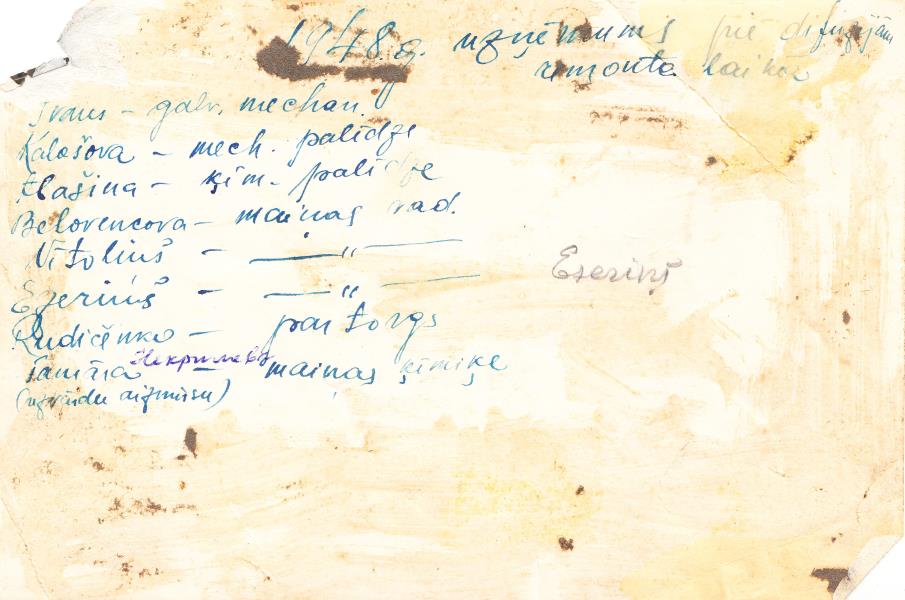 1948.g. uzņēmums pie difuzijām
remonta laikā
Ivans – galv. mechan.
Kalašova – mech. palīdze
Elašina – ķim. palīdze
Belorencova – maiņas vad.
Vītoliņš – — " —
Ezeriņš – — " —
Ezeriņš
Rudičenko – partorgs
Tamāra – maiņas ķīmiķe
(uzvārdu aizmirsu)